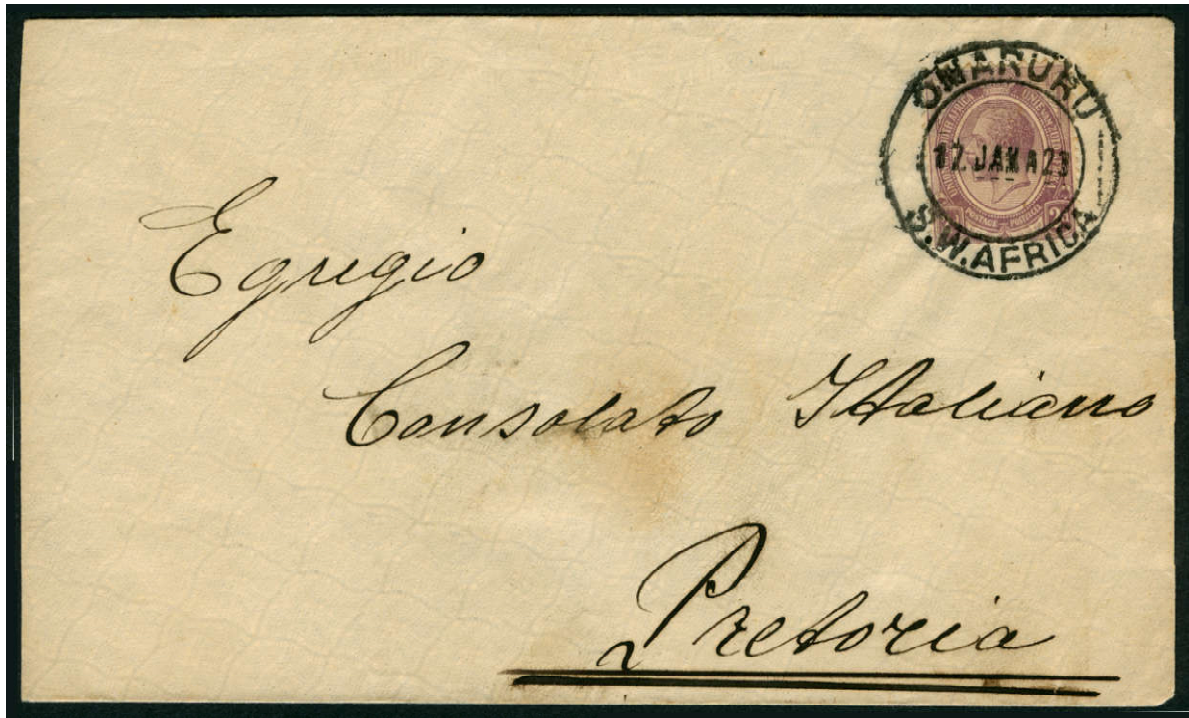 OMARURU
12. JAN A23
S.W. AFRICA
Egregio
Consolato Italiano
Pretoria